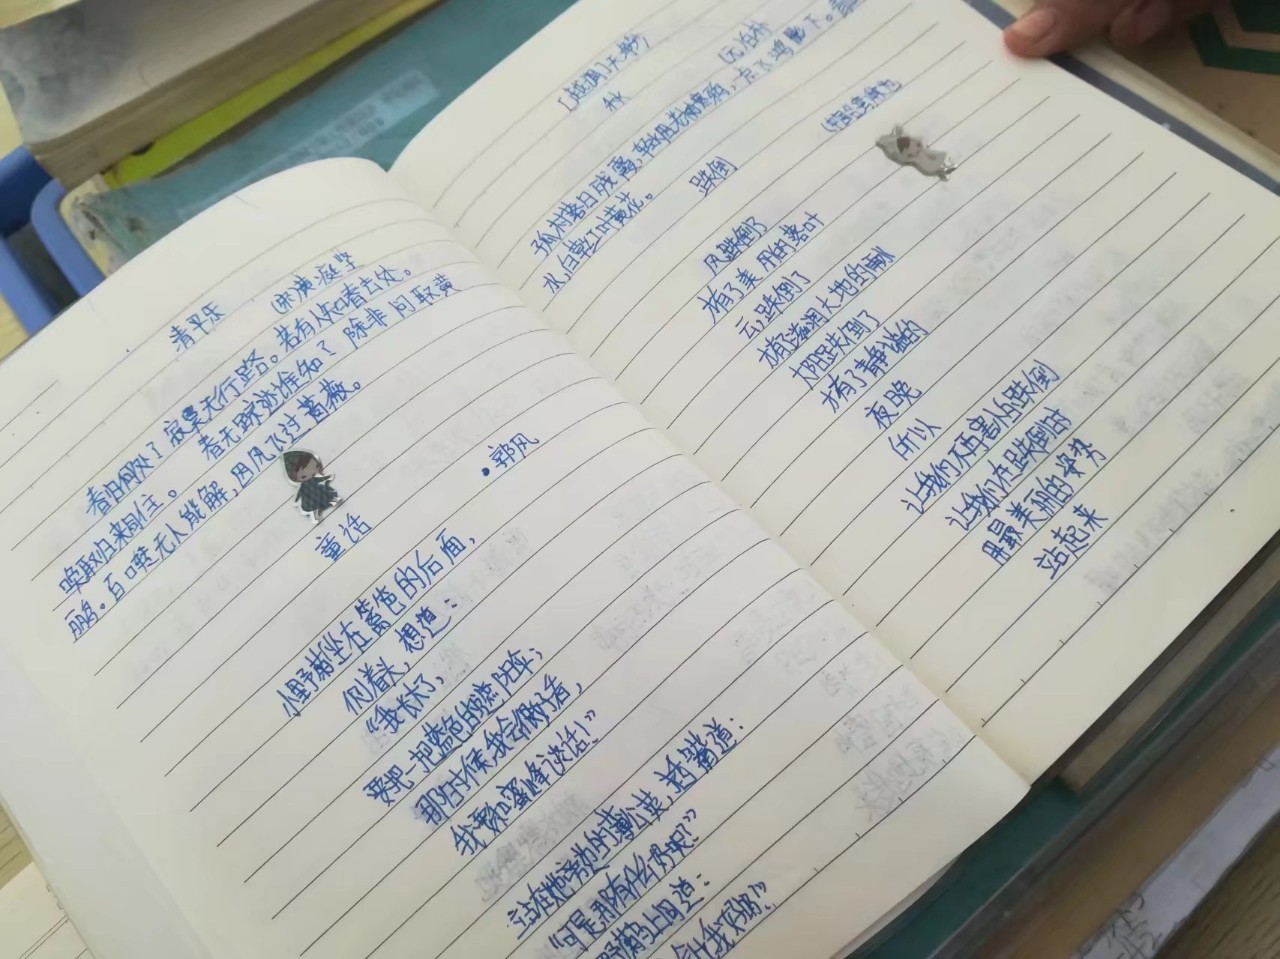 清平乐
(宋)黄庭坚
春归何处？寂寞无行路。若有人知春去处。
唤取归来同住。 春无踪迹谁知？除非问取黄
鹂。百啭无人能解，因风飞过蔷薇。
童话
•郭风
小野菊坐在篱笆的后面，
侧着头，想道：
“我长大了，
要把一把蓝色的遮阳伞；
那时候我会很好看，
我要和蜜蜂谈话！”
站在她旁边的蒲公英，
道：
“可是那有什么
野菊马上问道：
[越调]天净沙
秋
(元)白朴
孤村落日残霞，轻烟老树寒鸦，一点飞鸿影下。青
水，白草红叶黄花。
跌倒
风跌倒了
才有了美丽的落叶
云，跌倒了
才有了滋润大地的雨
太阳跌倒了
才有了静谧的
夜晚
所以
让我们不再害怕跌倒
让我们在跌倒时
用最美丽的姿势
站起来